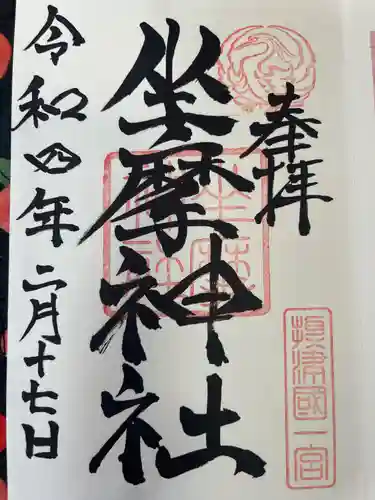 奉拝
摂津國一宮
坐摩神社
令和四年二月十七日